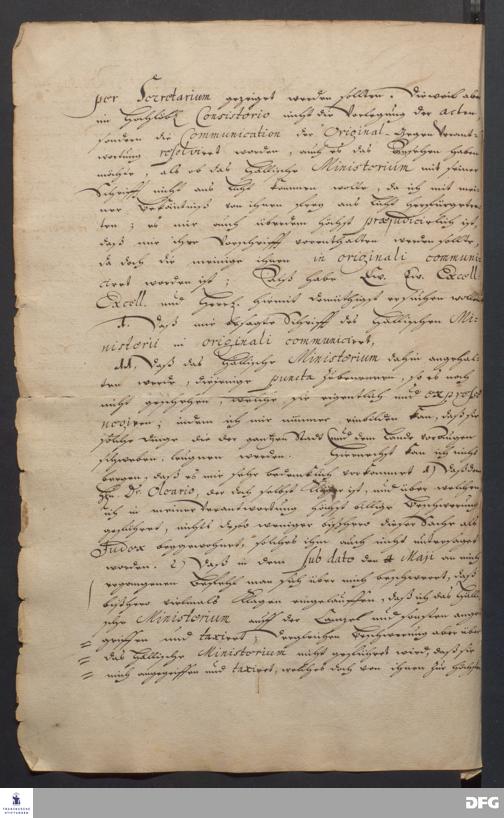 per Secretarium gezeiget werden sollten. Dieweil aber
im Hochlöbl. Consistorio nicht die Vorlegung der acten,
sondern die Communication der Original-Gegen Verant-
wortung resolviret worden, auch es das Ansehen haben
möchte, als ob das Hällische Ministerium mit seiner
Schrifft nicht ans Licht kommen wolle, da ich mit mei-
ner Bekäntniß von ihnen ans Licht
ten; es mir auch überdem höchst præjudicirlich ist,
daß mir ihre Vorschrifft vorenthalten werden sollte,
da doch die meinige ihnen in originali communi-
ciret worden ist; habe Ew. Ew. Excell.
Excell. und hiermit demüthigst ersuchen wollen
1. Daß mir besagte Schrifft des Hällischen Mi-
nisterii in originali communiciret,
11. Daß das Hällische Ministerium dahin angehal-
ten werde, diejenige puncta zu benennen, so es noch
nicht geschehen, welche sie eigentlich und expresse
negiren; indem ich mir nimmer einbilden kan, daß sie
solche Dinge die der gantzen Stadt und dem Lande vor Augen
schweben, leugnen werden. Hiernechst kan ich nicht
bergen, daß es mir sehr bedencklich vorkommet 1) Daß dem
Hn. D. Oleario, der doch selbst ist, und über welchen
ich in meiner Verantwortung höchst billige Beschwerung
geführet, nichts desto weniger bißhero dieser Sache als
Judex beygewohnet, solches ihm auch nicht untersaget
worden. 2) Daß in dem sub dato den 4 Maji an mich
ergangenen Befehl man sich über mich beschweret, daß
bißhero vielmals Klagen eingelauffen, daß ich das Hälli-
sche Ministerium auff der Cantzel und sonsten ange-
griffen und taxiret; dergleichen Beschwerung aber über
das Hällische Ministerium nicht geführet wird, daß sie
mich angegriffen und taxiret, welches doch von ihnen zur höchsten
FRANCKESCHE
STIFTUNGEN
DFG